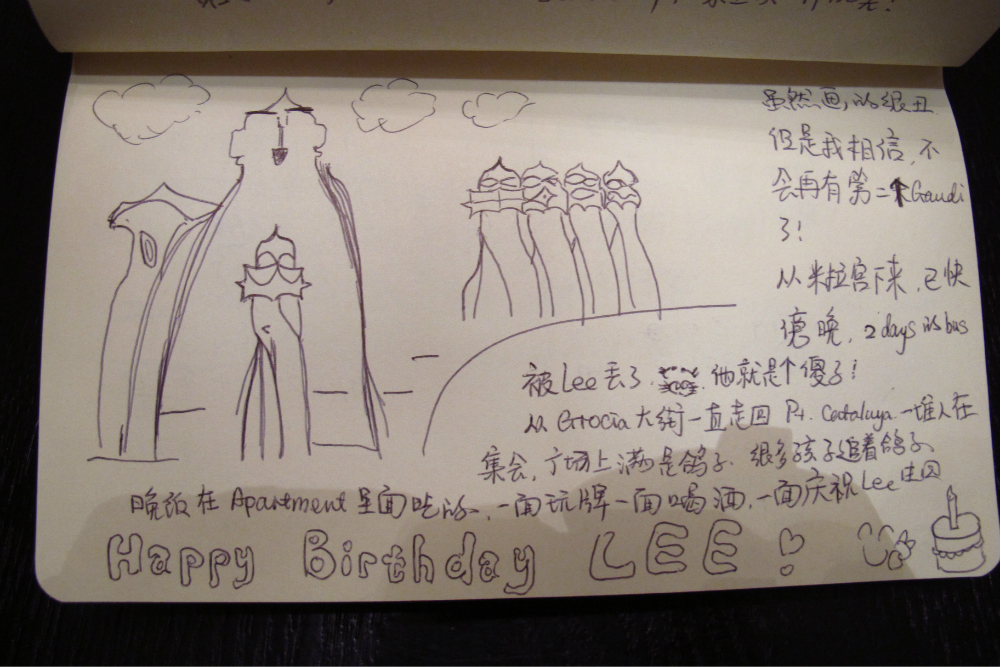 虽然画的很丑
但是我相信,不
会再有第二个Gaudi
了!
从米拉宫下来,已快
傍晚,2 days的bus
被Lee丢了. 他就是个傻子!
从Grocia大街一直走回 Pt. Cataluya.一堆人在
集会,广场上满是鸽子.很多孩子追着鸽子、
晚饭在Apartment里面吃的、一面玩牌一面喝酒,一面庆祝Lee生日
Happy Birthday LEE!